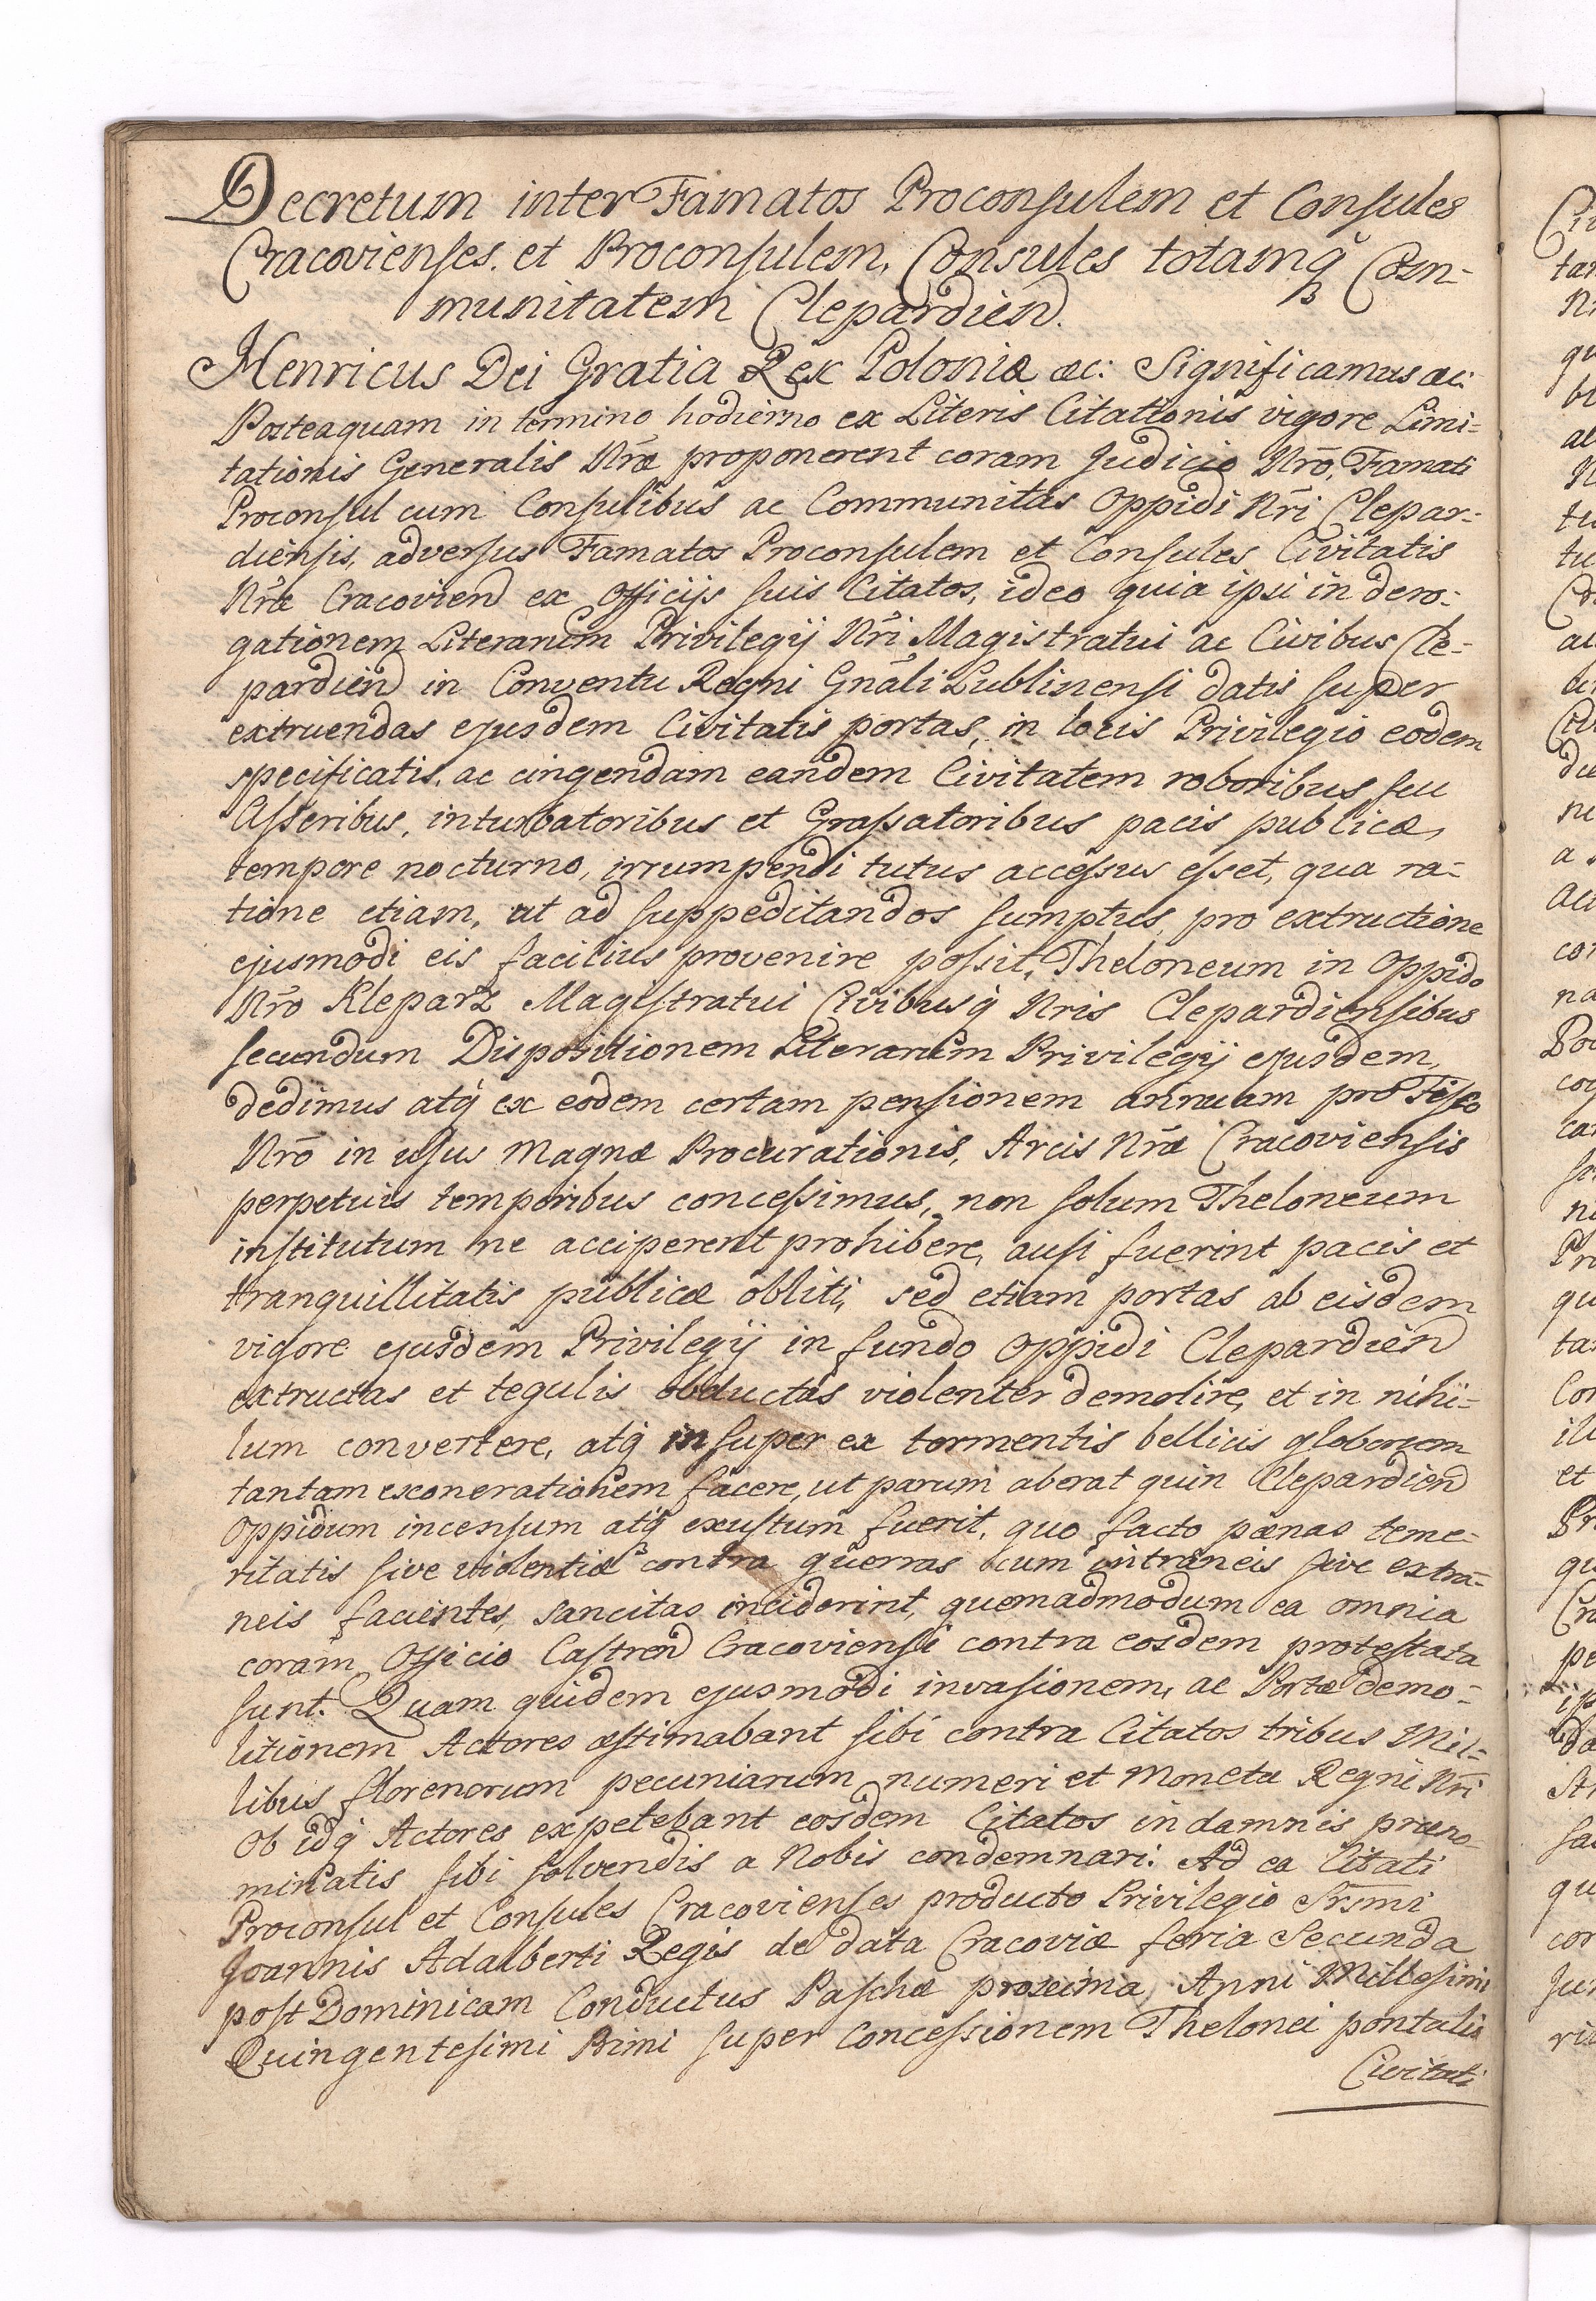 Decretum inter Famatos Proconsulem et Consules
Cracovienses. et Proconsulem, Consules totamq̃ Com-
munitatem Clepardien.
Henricus Dei Gratia Rex Poloniæ æc: Significamus æc:
Posteaquam in termino hodierno ex Literis Citationis vigore Limi-
tationis Generalis Nr̃æ proponerent coram Judicio Nr̃o, Famati
Proconsul cum Consulibus ac Communitas Oppidi Nr̃i Clepar-
diensis, adversus Famatos Proconsulem et Consules Civitatis
Nr̃æ Cracovien ex Officijs suis Citatos, ideo quia ipsi in dero-
gationem Literarum Privilegij Nr̃i Magistratui ac Civibus Cle-
pardien in Conventu Regni Gnãli Lublinensi datis super
extruendas ejusdem Civitatis portas, in locis Privilegio eodem
specificatis, ac cingendam eandem Civitatem roboribus seu
Asseribus, inturbatoribus et Grassatoribus pacis publicæ,
tempore nocturno, irrumpendi tutus accessus esset, qua ra-
tione etiam, ut ad suppeditandos sumptus, pro extructione
ejusmodi eis facilius provenire possit, Theloneum in Oppido
Nr̃o Kleparz Magistratui Civibusq̃ Nris Clepardiensibus
secundum Dispositionem Literarum Privilegij ejusdem,
dedimus atq̃ ex eodem certam pensionem annuam pro Fisco
Nr̃o in usus Magnæ Procurationis, Arcis Nr̃æ Cracoviensis
perpetuis temporibus concessimus, non solum Theloneum
institutum ne acciperent prohibere, ausi fuerint pacis et
tranquillitatis publicæ obliti, sed etiam portas ab eisdem
vigore ejusdem Privilegij in fundo Oppidi Clepardien
extructas et tegulis obductas violenter demolire, et in nihi-
lum convertere, atq̃ insuper ex tormentis bellicis globorum
tantam exonerationem facere, ut parum aberat quin Clepardien
Oppidum incensum atq̃ exustum fuerit, quo facto pænas teme-
ritatis sive violentiæ contra guerras cum intraneis sive extra-
neis facientes, sancitas inciderint, quemadmodum ea omnia
coram Officio Castren Cracoviensi contra eosdem protestata
sunt. Quam quidem ejusmodi invasionem, ac Portæ demo-
litionem Actores æstimabant sibi contra Citatos tribus Mil-
libus florenorum pecuniarum numeri et Monetæ Regni Nr̃i
Ob idq̃ Actores expetebant eosdem Citatos in damnis præno-
minatis sibi solvendis a Nobis condemnari: Ad ea Citati
Proconsul et Consules Cracovienses producto Privilegio Sr̃mi
Joannis Adalberti Regis de data Cracoviæ feria Secunda
post Dominicam Conductus Paschæ proxima, Anni Millesimi
Quingentesimi Primi super Concessionem Thelonei pontalis
Civitati